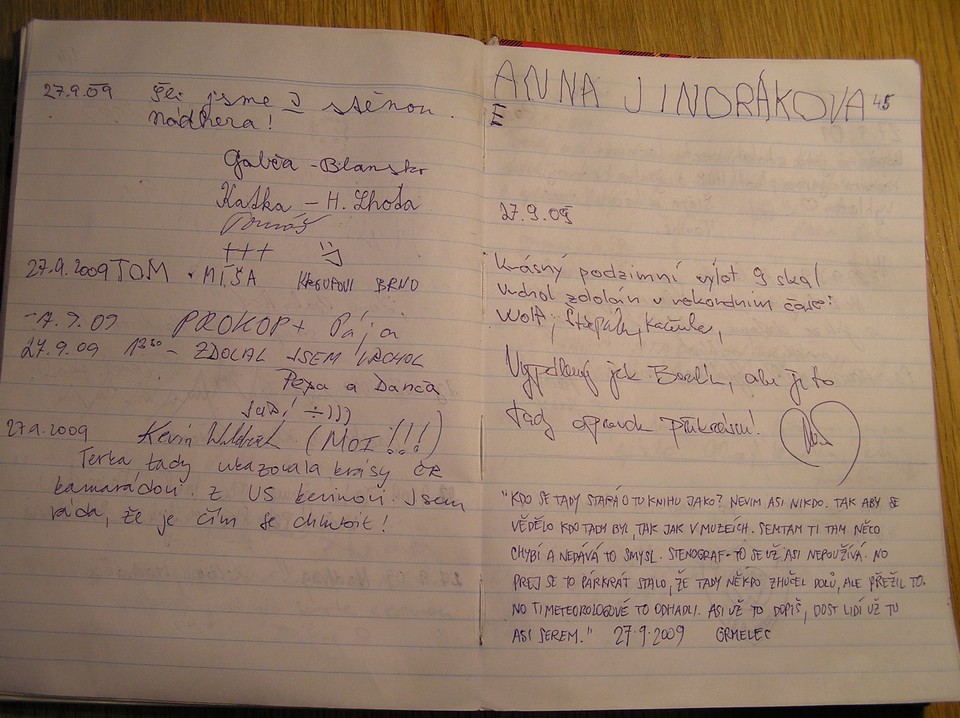 27.9.09 Šli jsme J stěnou.
Nádhera!
Gabča - Blansko
Katka - H. Lhota
Tomáš
+++
27.9.2009 TOM + MÍŠA KREUPOVI BRNO
-7.9.09 PROKOP + Pája
27.9.09 13⁵⁰ - ZDOLAL JSEM VRCHOL
Pepa a Danča
÷)))
27.9.2009 Kevin (MOI!!!)
Terka tady ukazovala krásy ČR
kamarádovi z US kevinovi. Jsem
ráda, že je čím se chlubit!
ANNA JINDRÁKOVA 45
E
27.9.09
Krásný podzimní výlet 9 skal
vrchol zdolán v rekordním čase:
Wolf, Štěpán, Kačule,
jak Borůvk, ale je to
tady opravdu překrásn!
"KDO SE TADY STARÁ O TU KNIHU JAKO? NEVIM ASI NIKDO. TAK ABY SE
VĚDĚLO KDO TADY BYL, TAK JAK V MUZEÍCH. SEMTAM TI TAM NĚCO
CHYBÍ A NEDÁVÁ TO SMYSL. STENOGRAF-TO SE UŽ ASI NEPOUŽÍVÁ. NO
PREJ SE TO PÁRKRÁT STALO, ŽE TADY NĚKDO ZHUČEL DOLŮ, ALE PŘEŽIL TO.
NO TI METEOROLOGOVÉ TO ODHADLI. ASI UŽ TO DOPÍŠ, DOST LIDÍ UŽ TU
ASI SEREM." 27.9.2009 GRMELEC